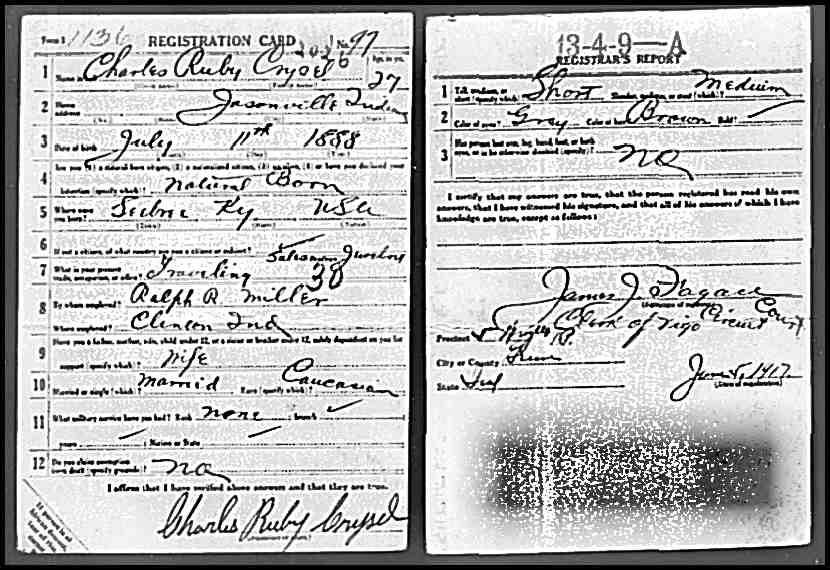 Form 1 1136 REGISTRATION CARD No. 97
1 Name in full Charles Ruby Crysel Age, in yrs. 27
2 Home address Jasonville Indiana
3 Date of birth July 11th 1888
4 Are you (1) a natural born citizen, (2) a naturalized citizen, (3) an alien, (4) or have you declared your
intention (specify which)? Natural Born
5 Where were you born? Ky USA
6 If not a citizen, of what country are you a citizen or subject?
7 What is your present trade, occupation, or office? Traveling Salesman Jewelry
38
8 By whom employed? Ralph R. Miller
Where employed? Clinton Ind
9 Have you a father, mother, wife, child under 12, or a sister or brother under 12, solely dependent on you for
support (specify which)? Wife
10 Married or single (which)? Married Race (specify which)? Caucasian
11 What military service have you had? Rank none ; branch
years ; Nation or State
12 Do you claim exemption from draft (specify grounds)? No
I affirm that I have verified above answers and that they are true.
Charles Ruby Crysel
If person is of African descent, tear off this corner
13-4-9-A
REGISTRAR'S REPORT
1 Tall, medium, or short (specify which)? Short Slender, medium, or stout (which)? Medium
2 Color of eyes? Grey Color of hair? Brown Bald?
3 Has person lost arm, leg, hand, foot, or both eyes, or is he otherwise disabled (specify)? No
I certify that my answers are true, that the person registered has read his own
answers, that I have witnessed his signature, and that all of his answers of which I have
knowledge are true, except as follows:
James J.
(Signature of registrar)
Clerk of Vigo Circuit Court
Precinct
City or County
State Ind June 5, 1917
(Date of registration)